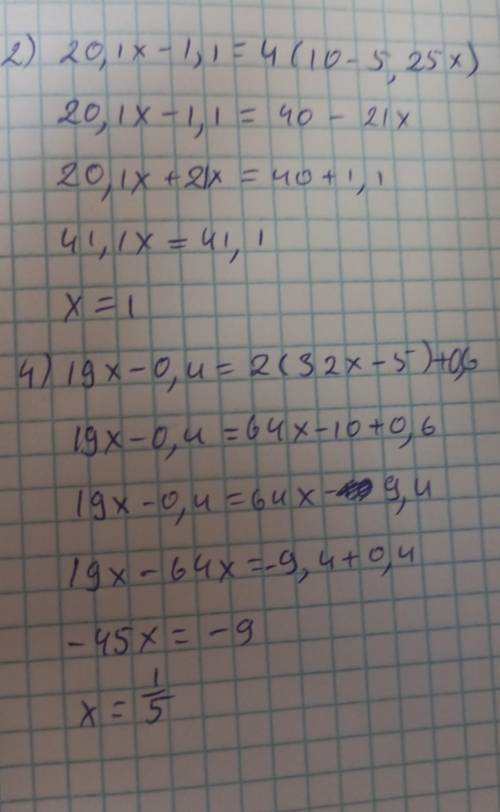 2) 20,1x-1,1=4(10-5,25x)
20,1x-1,1=40-21x
20,1x+21x=40+1,1
41,1x=41,1
x=1
4) 19x-0,4=2(32x-5)+0,6
19x-0,4=64x-10+0,6
19x-0,4=64x-9,4
19x-64x=-9,4+0,4
-45x=-9
x=1/5